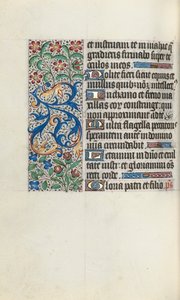 et instruam te in via hac q
gradieris firmabo super te
oculos meos
Nolite fieri sicut equus et
mulus quibus non est intellect
In chamo et freno ma
xillas eor constringe qui
non approximant ad te
Multa flagella peccatoris
sperantem aut in domino
mia circundabit
Letamini in dno et exul
tate iusti et gloriamini oes
recti corde
Gloria patri et filio